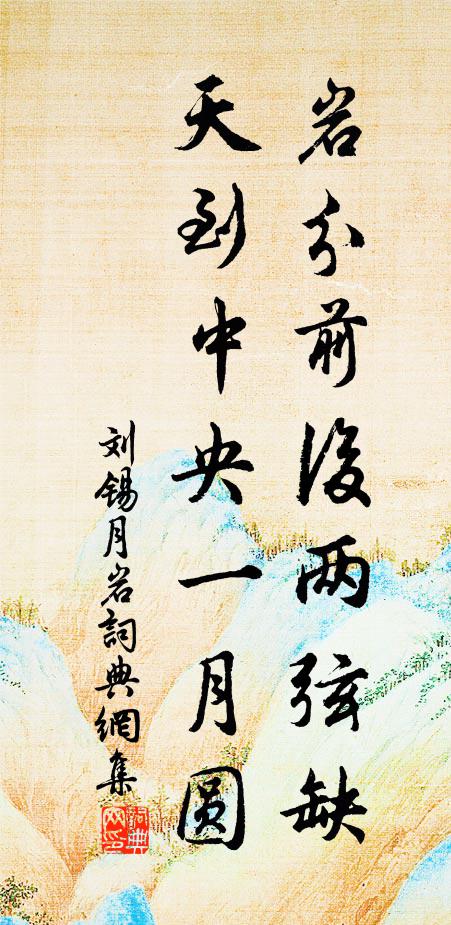 岩分前後两弦缺
天到中央一月圆
刘锡月岩詞典網集
詞典
网印